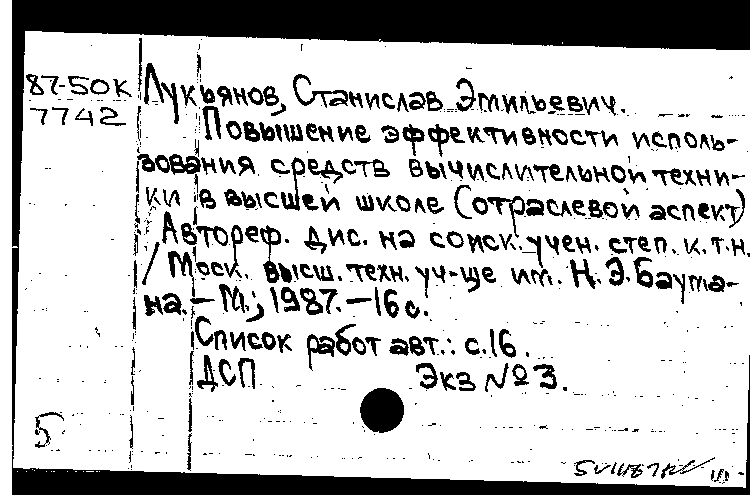 87-50К
7742
Лукьянов, Станислав Эмильевич.
Повышение эффективности исполь-
зования средств вычислительной техни-
ки в высшей школе (отраслевой аспект)
Автореф. дис. на соиск. учен. степ. к.т.н.
/ Моск. высш. техн. уч-ще им. Н.Э.Баума-
на. – М., 1987. – 16 с.
Список работ авт.: с.16.
ДСП Экз № 3.
5